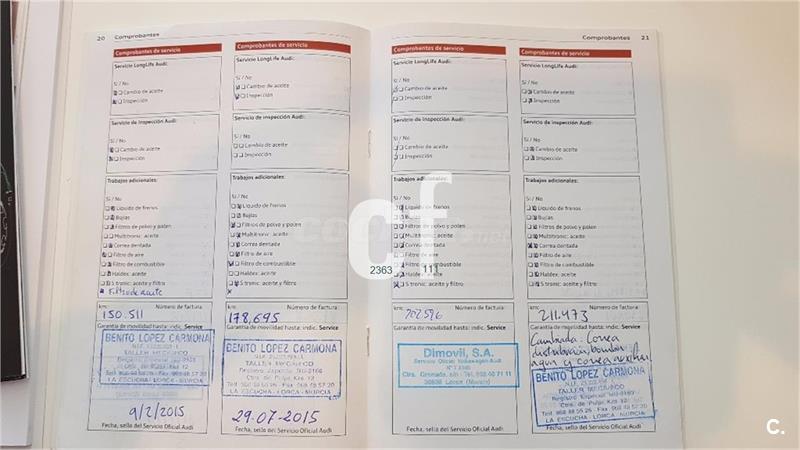 20 Comprobantes
Comprobantes de servicio
Servicio LongLife Audi:
Sí / No
Cambio de aceite
Inspección
Servicio de inspección Audi:
Sí / No
Cambio de aceite
Inspección
Trabajos adicionales:
Sí / No
Líquido de frenos
Bujías
Filtros de polvo y polen
Multitronic: aceite
Correa dentada
Filtro de aire
Filtro de combustible
Haldex: aceite
S tronic: aceite y filtro
km: Número de factura:
150.511
Garantía de movilidad hasta: indic. Service
BENITO LOPEZ CARMONA
TALLER MECANICO
LA ESCUCHA - LORCA - MURCIA
9/2/2015
Fecha, sello del Servicio Oficial Audi
Comprobantes de servicio
Servicio LongLife Audi:
Sí / No
Cambio de aceite
Inspección
Servicio de inspección Audi:
Sí / No
Cambio de aceite
Inspección
Trabajos adicionales:
Sí / No
Líquido de frenos
Bujías
Filtros de polvo y polen
Multitronic: aceite
Correa dentada
Filtro de aire
Filtro de combustible
Haldex: aceite
S tronic: aceite y filtro
km: Número de factura:
178,695
Garantía de movilidad hasta: indic. Service
BENITO LOPEZ CARMONA
TALLER MECANICO
LA ESCUCHA - LORCA - MURCIA
29-07-2015
Fecha, sello del Servicio Oficial Audi
Comprobantes 21
Comprobantes de servicio
Servicio LongLife Audi:
Sí / No
Cambio de aceite
Inspección
Servicio de inspección Audi:
Sí / No
Cambio de aceite
Inspección
Trabajos adicionales:
Sí / No
Líquido de frenos
Bujías
Filtros de polvo y polen
Multitronic: aceite
Correa dentada
Filtro de aire
Filtro de combustible
Haldex: aceite
S tronic: aceite y filtro
km: Número de factura:
202596
Garantía de movilidad hasta: indic. Service
Dimovil, S.A.
Servicio Oficial Volkswagen-Audi
Fecha, sello del Servicio Oficial Audi
Comprobantes de servicio
Servicio LongLife Audi:
Sí / No
Cambio de aceite
Inspección
Servicio de inspección Audi:
Sí / No
Cambio de aceite
Inspección
Trabajos adicionales:
Sí / No
Líquido de frenos
Bujías
Filtros de polvo y polen
Multitronic: aceite
Correa dentada
Filtro de aire
Filtro de combustible
Haldex: aceite
S tronic: aceite y filtro
km: Número de factura:
211.473
Garantía de movilidad hasta: indic. Service
Cambiado: Correa
distribución, bomba
agua y correa
BENITO LOPEZ CARMONA
TALLER MECANICO
LA ESCUCHA - LORCA - MURCIA
Fecha, sello del Servicio Oficial Audi
cf
2363 111
C.